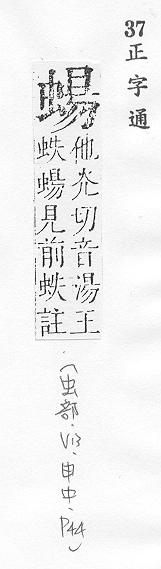 37正字通
蝪
他亢切音湯王
蛈蝪見前蛈註
（虫部·V13·申中·P44）